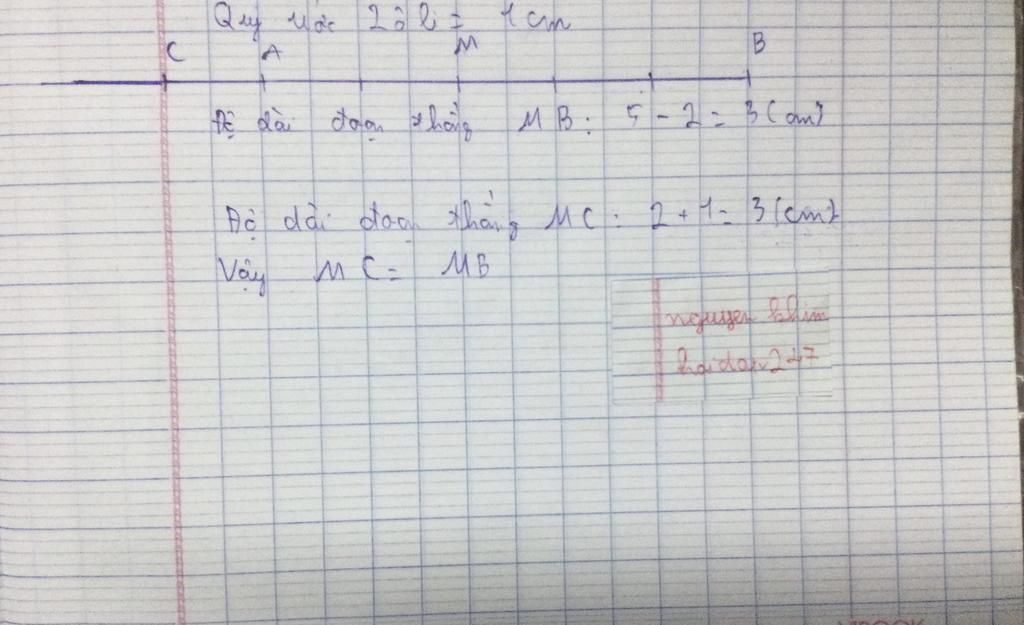 Quy ước 2 ô li = 1 cm
C A M B
Độ dài đoạn thẳng MB: 5 - 2 = 3 (cm)
Độ dài đoạn thẳng MC: 2 + 1 = 3 (cm)
Vậy MC = MB
nguyen khim
hoidap247